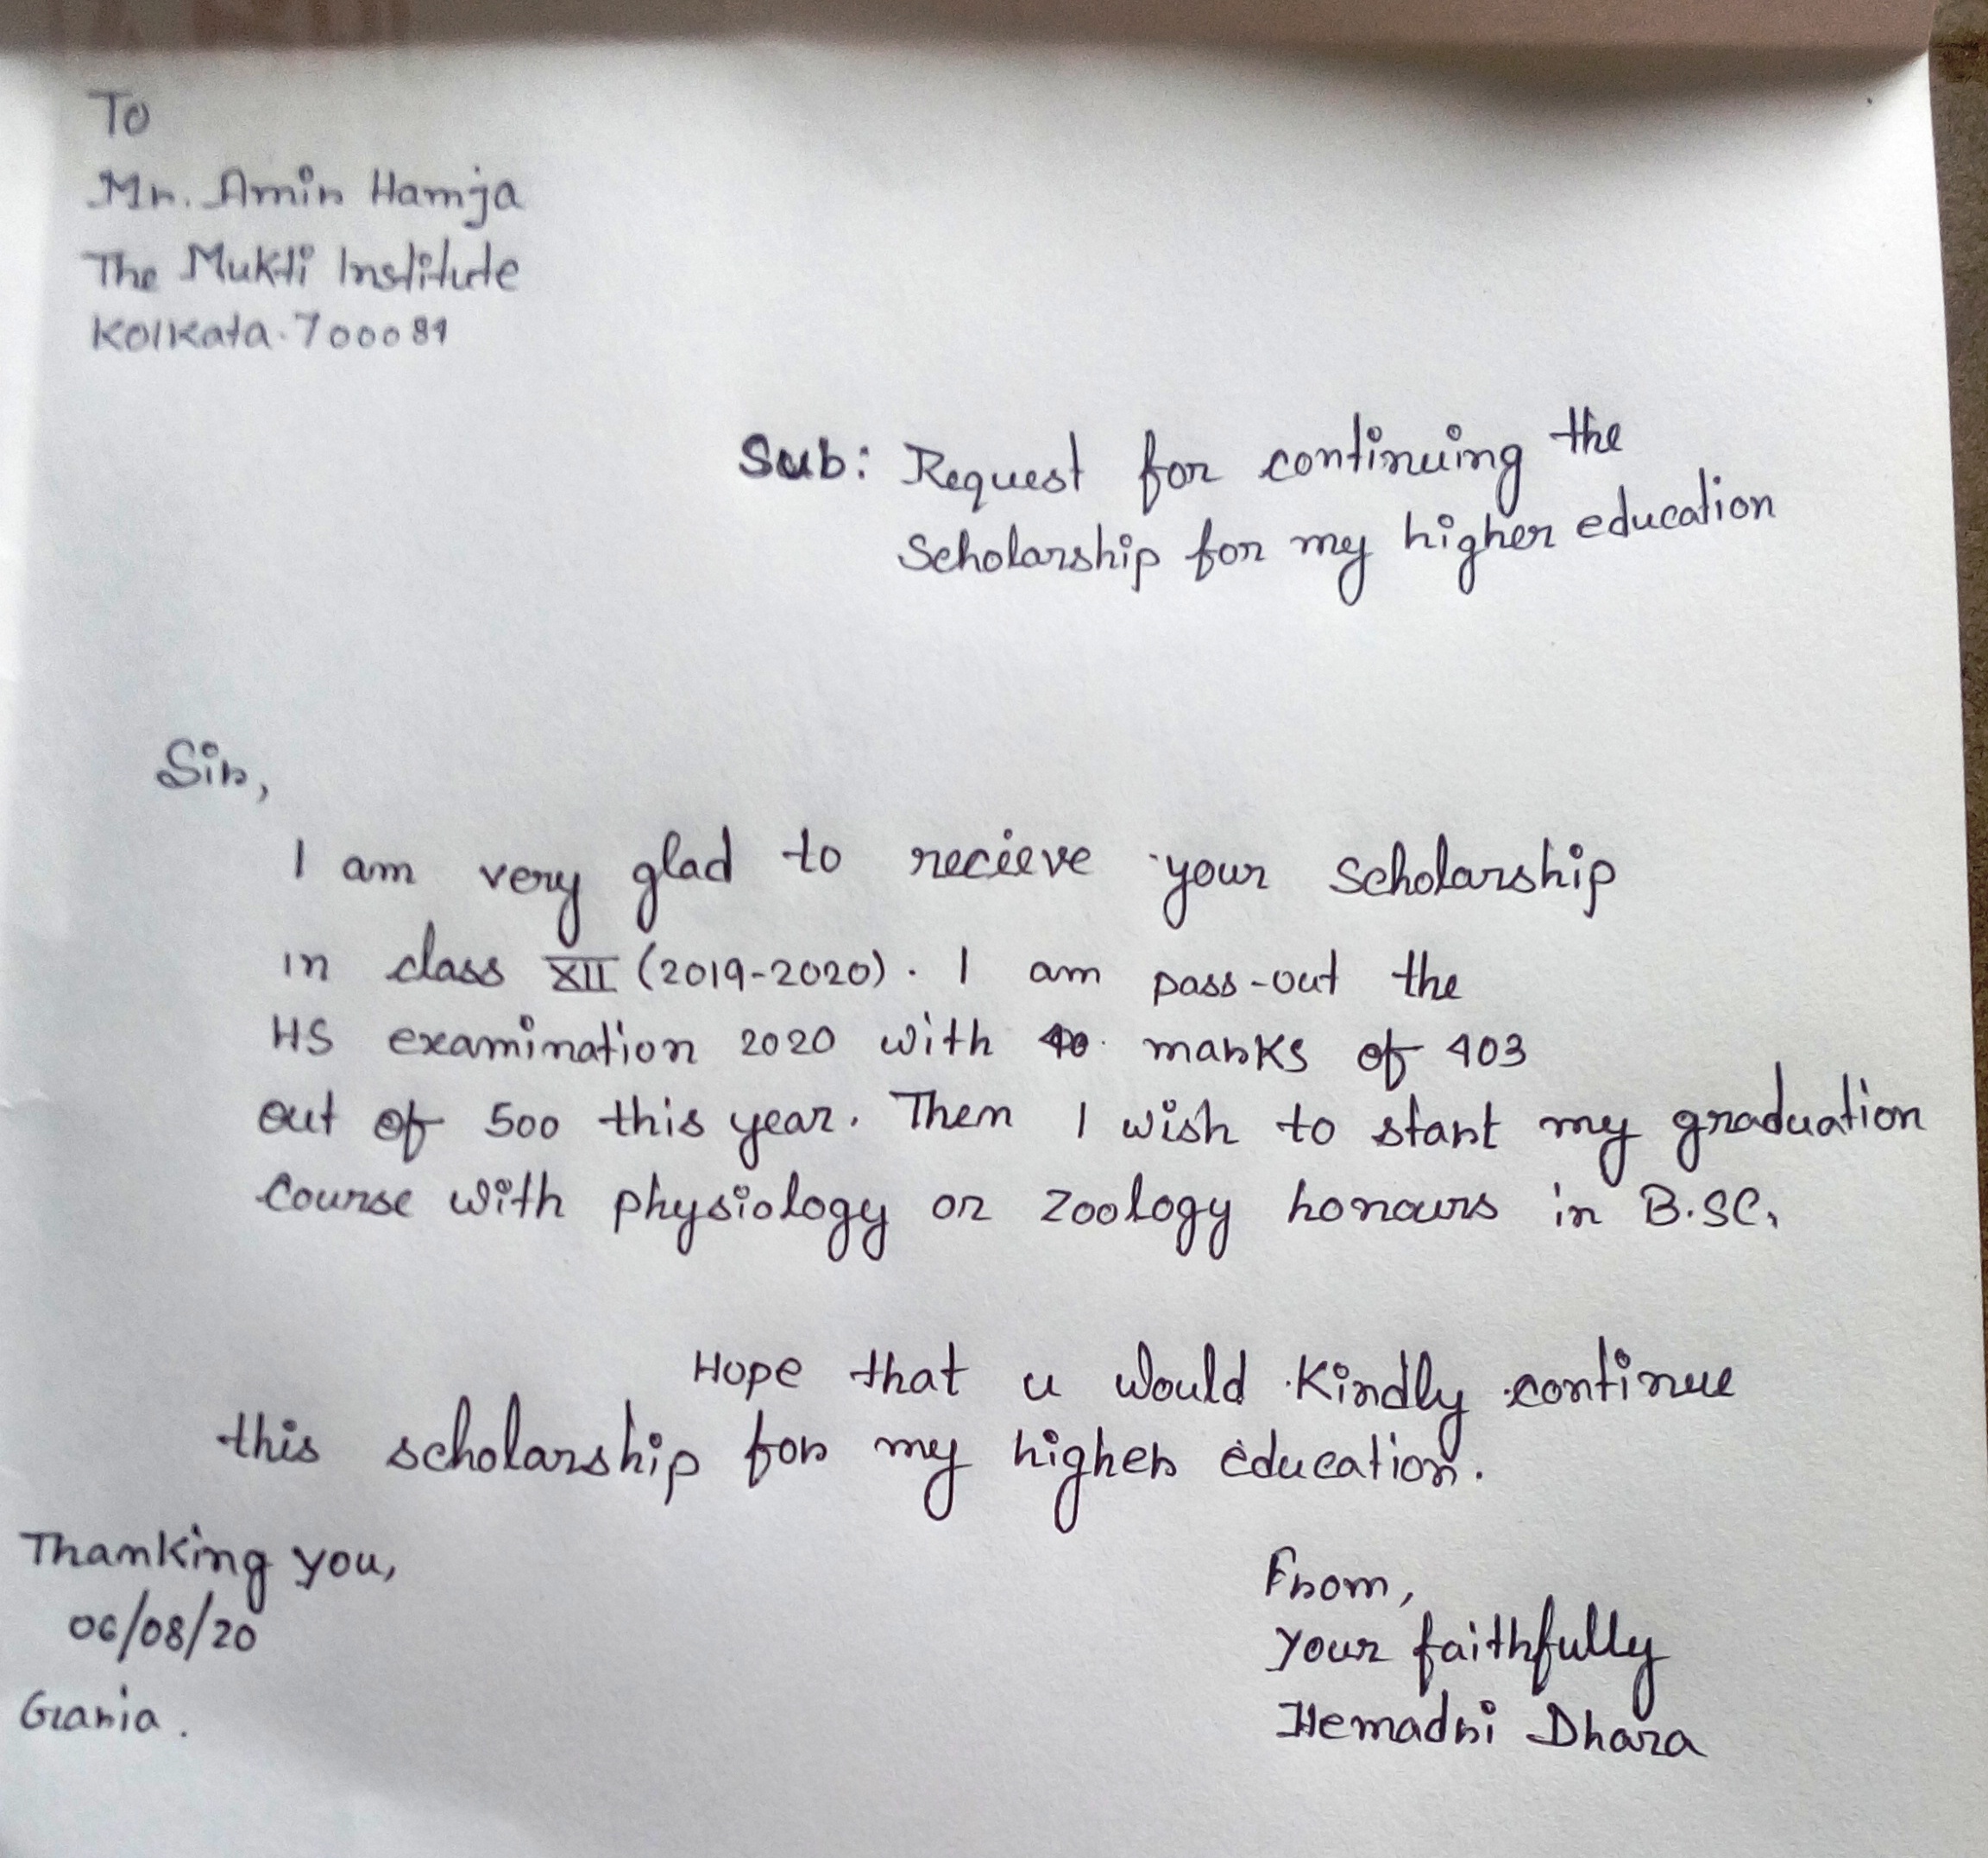 To
Mr. Amin Hamja
The Mukti Institute
Kolkata-700089
Sub: Request for continuing the
Scholarship for my higher education
Sir,
I am very glad to recieve your scholarship
in class XII (2019-2020). I am pass-out the
HS examination 2020 with marks of 403
out of 500 this year. Then I wish to start my graduation
course with physiology or zoology honours in B.SC,
Hope that u would kindly continue
this scholarship for my higher education.
Thanking you,
06/08/20
Garia.
From,
Your faithfully
Hemadri Dhara